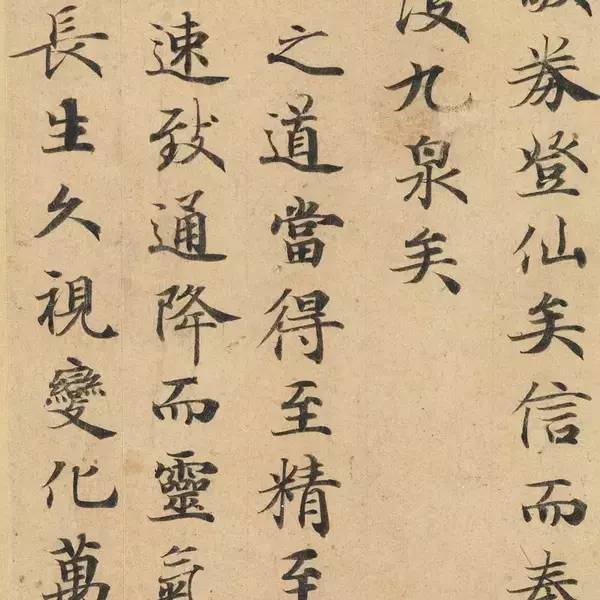 券登仙矣信而奉
没九泉矣
之道當得至精至
速致通降而靈氣
長生久視變化萬